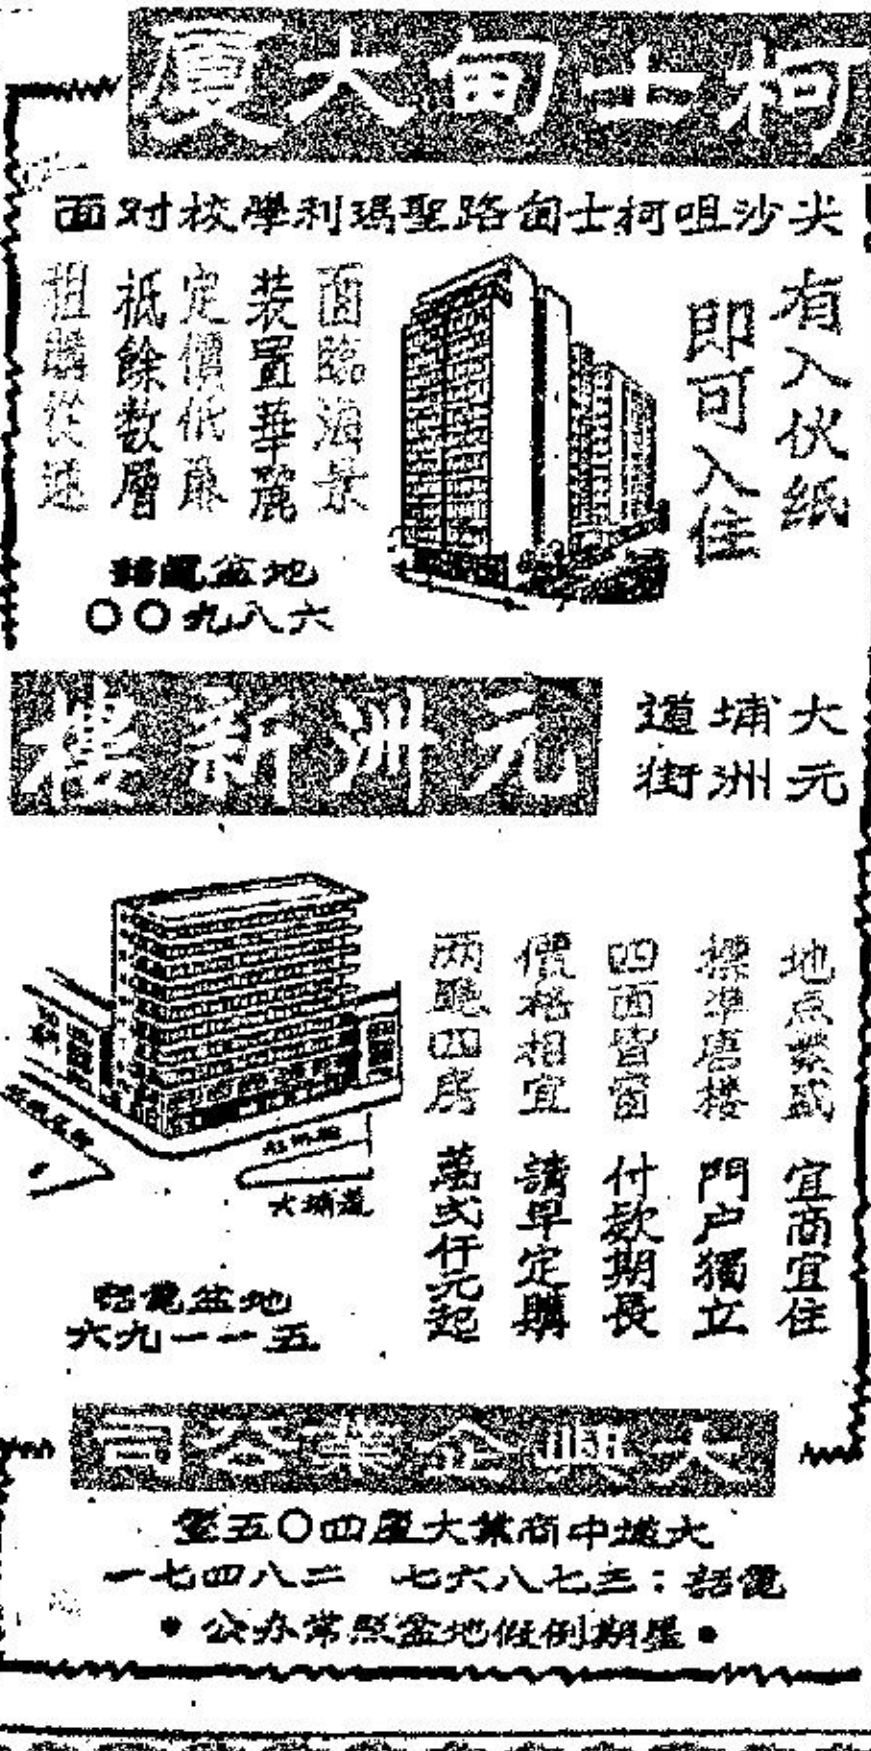 柯士甸大廈
尖沙咀柯士甸路聖瑪利學校對面
有入伙纸
即可入住
面臨海景
裝置華麗
定價低廉
祇餘数層
租購從速
地盆電話
六八九〇〇
大埔道
元洲街
元洲新樓
地点繁盛 宜商宜住
標準唐楼 門户獨立
四面皆窗 付款期長
價格相宜 請早定購
两廳四房 萬式仟元起
大埔道
地盆電話
五一一九六
大興企業公司
中商業大厦四〇五室
電話:三七八六七 二八四七一
•星期例假地盆照常办公•